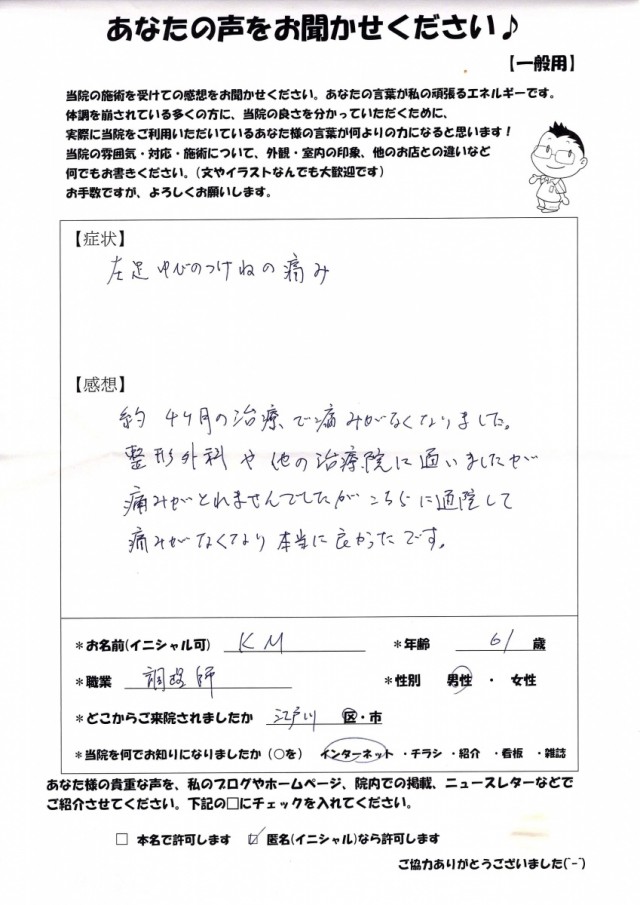 あなたの声をお聞かせください♪
【一般用】
当院の施術を受けての感想をお聞かせください。あなたの言葉が私の頑張るエネルギーです。
体調を崩されている多くの方に、当院の良さを分かっていただくために、
実際に当院をご利用いただいているあなた様の言葉が何よりの力になると思います!
当院の雰囲気・対応・施術について、外観・室内の印象、他のお店との違いなど
何でもお書きください。(文やイラストなんでも大歓迎です)
お手数ですが、よろしくお願いします。
【症状】
左足ゆびのつけねの痛み
【感想】
約4ヶ月の治療で痛みがなくなりました。
整形外科や他の治療院に通いましたが
痛みがとれませんでしたがこちらに通院して
痛みがなくなり本当に良かったです。
*お名前(イニシャル可) KM *年齢 61 歳
*職業 調理師 *性別 男性 ・ 女性
*どこからご来院されましたか 江戸川 区・市
*当院を何でお知りになりましたか(○を) インターネット ・チラシ ・紹介 ・看板 ・雑誌
あなた様の貴重な声を、私のブログやホームページ、院内での掲載、ニュースレターなどで
ご紹介させてください。下記の□にチェックを入れてください。
□ 本名で許可します ☑ 匿名(イニシャル)なら許可します
ご協力ありがとうございました(^-^)